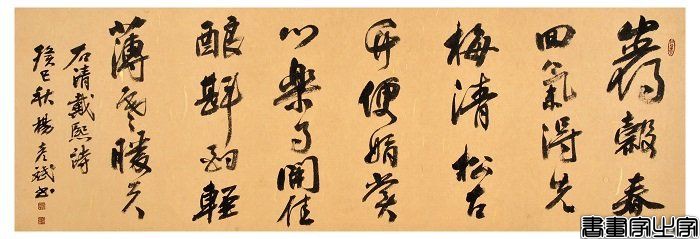 岩壑春
回氣得先
梅清松古
并便娟賞
心樂事開佳
釀斟酌輕
薄寒暖天
石清戴熙詩
癸巳秋楊彥斌書
書畫家之家